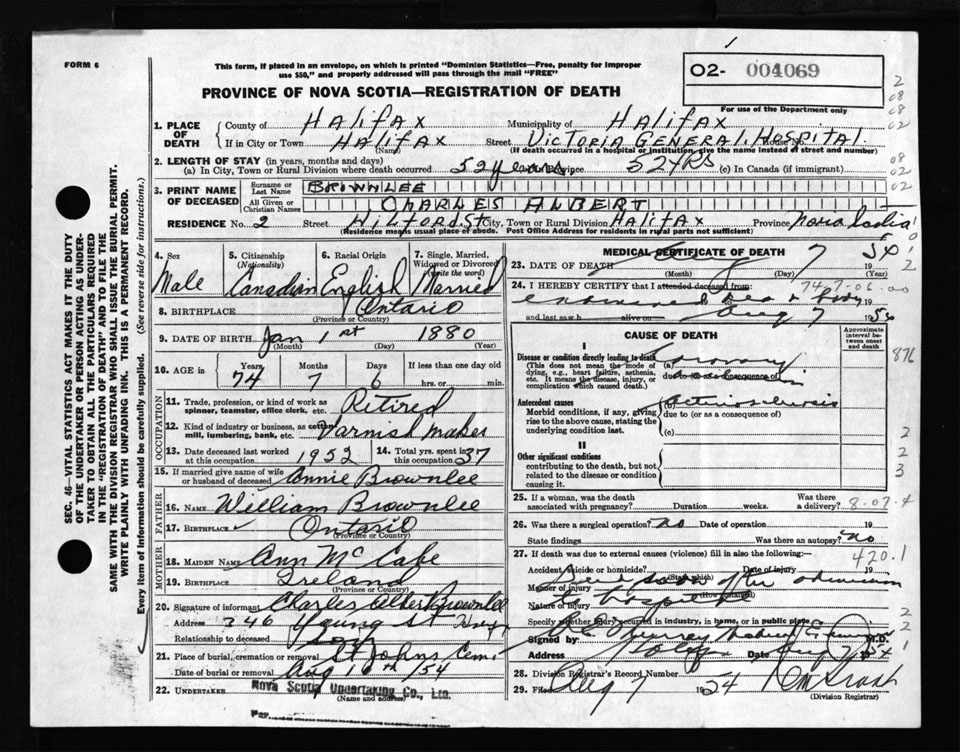 FORM 6
This form, if placed in an envelope, on which is printed "Dominion Statistics—Free, penalty for improper
use $50," and properly addressed will pass through the mail "FREE"
O2- 004069
PROVINCE OF NOVA SCOTIA—REGISTRATION OF DEATH
For use of the Department only
1. PLACE OF DEATH
County of Halifax Municipality of Halifax
If in City or Town Halifax Street Victoria General Hospital
(Name) (If death occurred in a hospital or institution, give the name instead of street and number)
2. LENGTH OF STAY (in years, months and days)
(a) In City, Town or Rural Division where death occurred 52 years Province 52 YRS (c) In Canada (if immigrant)
3. PRINT NAME OF DECEASED
Surname or Last Name BROWNLEE
All Given or Christian Names CHARLES ALBERT
RESIDENCE No. 2 Street Wilford St City, Town or Rural Division Halifax Province Nova Scotia
(Residence means usual place of abode. Post Office Address for residents in rural parts not sufficient)
4. Sex Male
5. Citizenship (Nationality) Canadian
6. Racial Origin English
7. Single, Married, Widowed or Divorced (write the word) Married
8. BIRTHPLACE Ontario
(Province or Country)
9. DATE OF BIRTH Jan 1st 1880
(Month) (Day) (Year)
10. AGE in Years 74 Months 7 Days 6 If less than one day old hrs. or min.
OCCUPATION
11. Trade, profession, or kind of work as spinner, teamster, office clerk, etc. Retired
12. Kind of industry or business, as cotton mill, lumbering, bank, etc. Varnish Maker
13. Date deceased last worked at this occupation 1952
14. Total yrs. spent in this occupation 37
15. If married give name of wife or husband of deceased Annie Brownlee
FATHER
16. NAME William Brownlee
17. BIRTHPLACE Ontario
(Province or Country)
MOTHER
18. MAIDEN NAME Ann McCabe
19. BIRTHPLACE Ireland
(Province or Country)
20. Signature of informant Charles Albert Brownlee
Address 346 Young St
Relationship to deceased Son
21. Place of burial, cremation or removal St Johns Cem.
Date of burial or removal Aug 10th/54
22. UNDERTAKER Nova Scotia Undertaking Co., Ltd.
(Name and address)
Per
MEDICAL CERTIFICATE OF DEATH
23. DATE OF DEATH 8 7 54
(Month) (Day) (Year)
24. I HEREBY CERTIFY that I attended deceased from:
examined dead body 19
and last saw h alive on Aug 7 19
CAUSE OF DEATH
Approximate interval between onset and death
I
Disease or condition directly leading to death
(This does not mean the mode of dying, e.g., heart failure, asthenia, etc. It means the disease, injury, or complication which caused death.
(a) Coronary
due to (or as a consequence of)
Antecedent causes
Morbid conditions, if any, giving rise to the above cause, stating the underlying condition last.
(b) Arteriosclerosis
due to (or as a consequence of)
(c)
II
Other significant conditions
contributing to the death, but not related to the disease or condition causing it.
25. If a woman, was the death associated with pregnancy? Duration weeks. Was there a delivery?
26. Was there a surgical operation? No Date of operation 19
State findings Was there an autopsy? No
27. If death was due to external causes (violence) fill in also the following:—
Accident, suicide or homicide? Date of injury 19
(State which)
Died soon after admission
Manner of injury
(How sustained)
to hospital
Nature of injury
Specify whether injury occurred in industry, in home, or in public place
Signed by M.D.
Address Date Aug 7/54
28. Division Registrar's Record Number
29. Filed Aug 7 1954
(Division Registrar)
876
8-07-4
420.1
SEC. 46—VITAL STATISTICS ACT MAKES IT THE DUTY
OF THE UNDERTAKER OR PERSON ACTING AS UNDER-
TAKER TO OBTAIN ALL THE PARTICULARS REQUIRED
IN THE "REGISTRATION OF DEATH" AND TO FILE THE
SAME WITH THE DIVISION REGISTRAR WHO SHALL ISSUE THE BURIAL PERMIT.
WRITE PLAINLY WITH UNFADING INK. THIS IS A PERMANENT RECORD.
Every item of information should be carefully supplied. (See reverse side for instructions.)